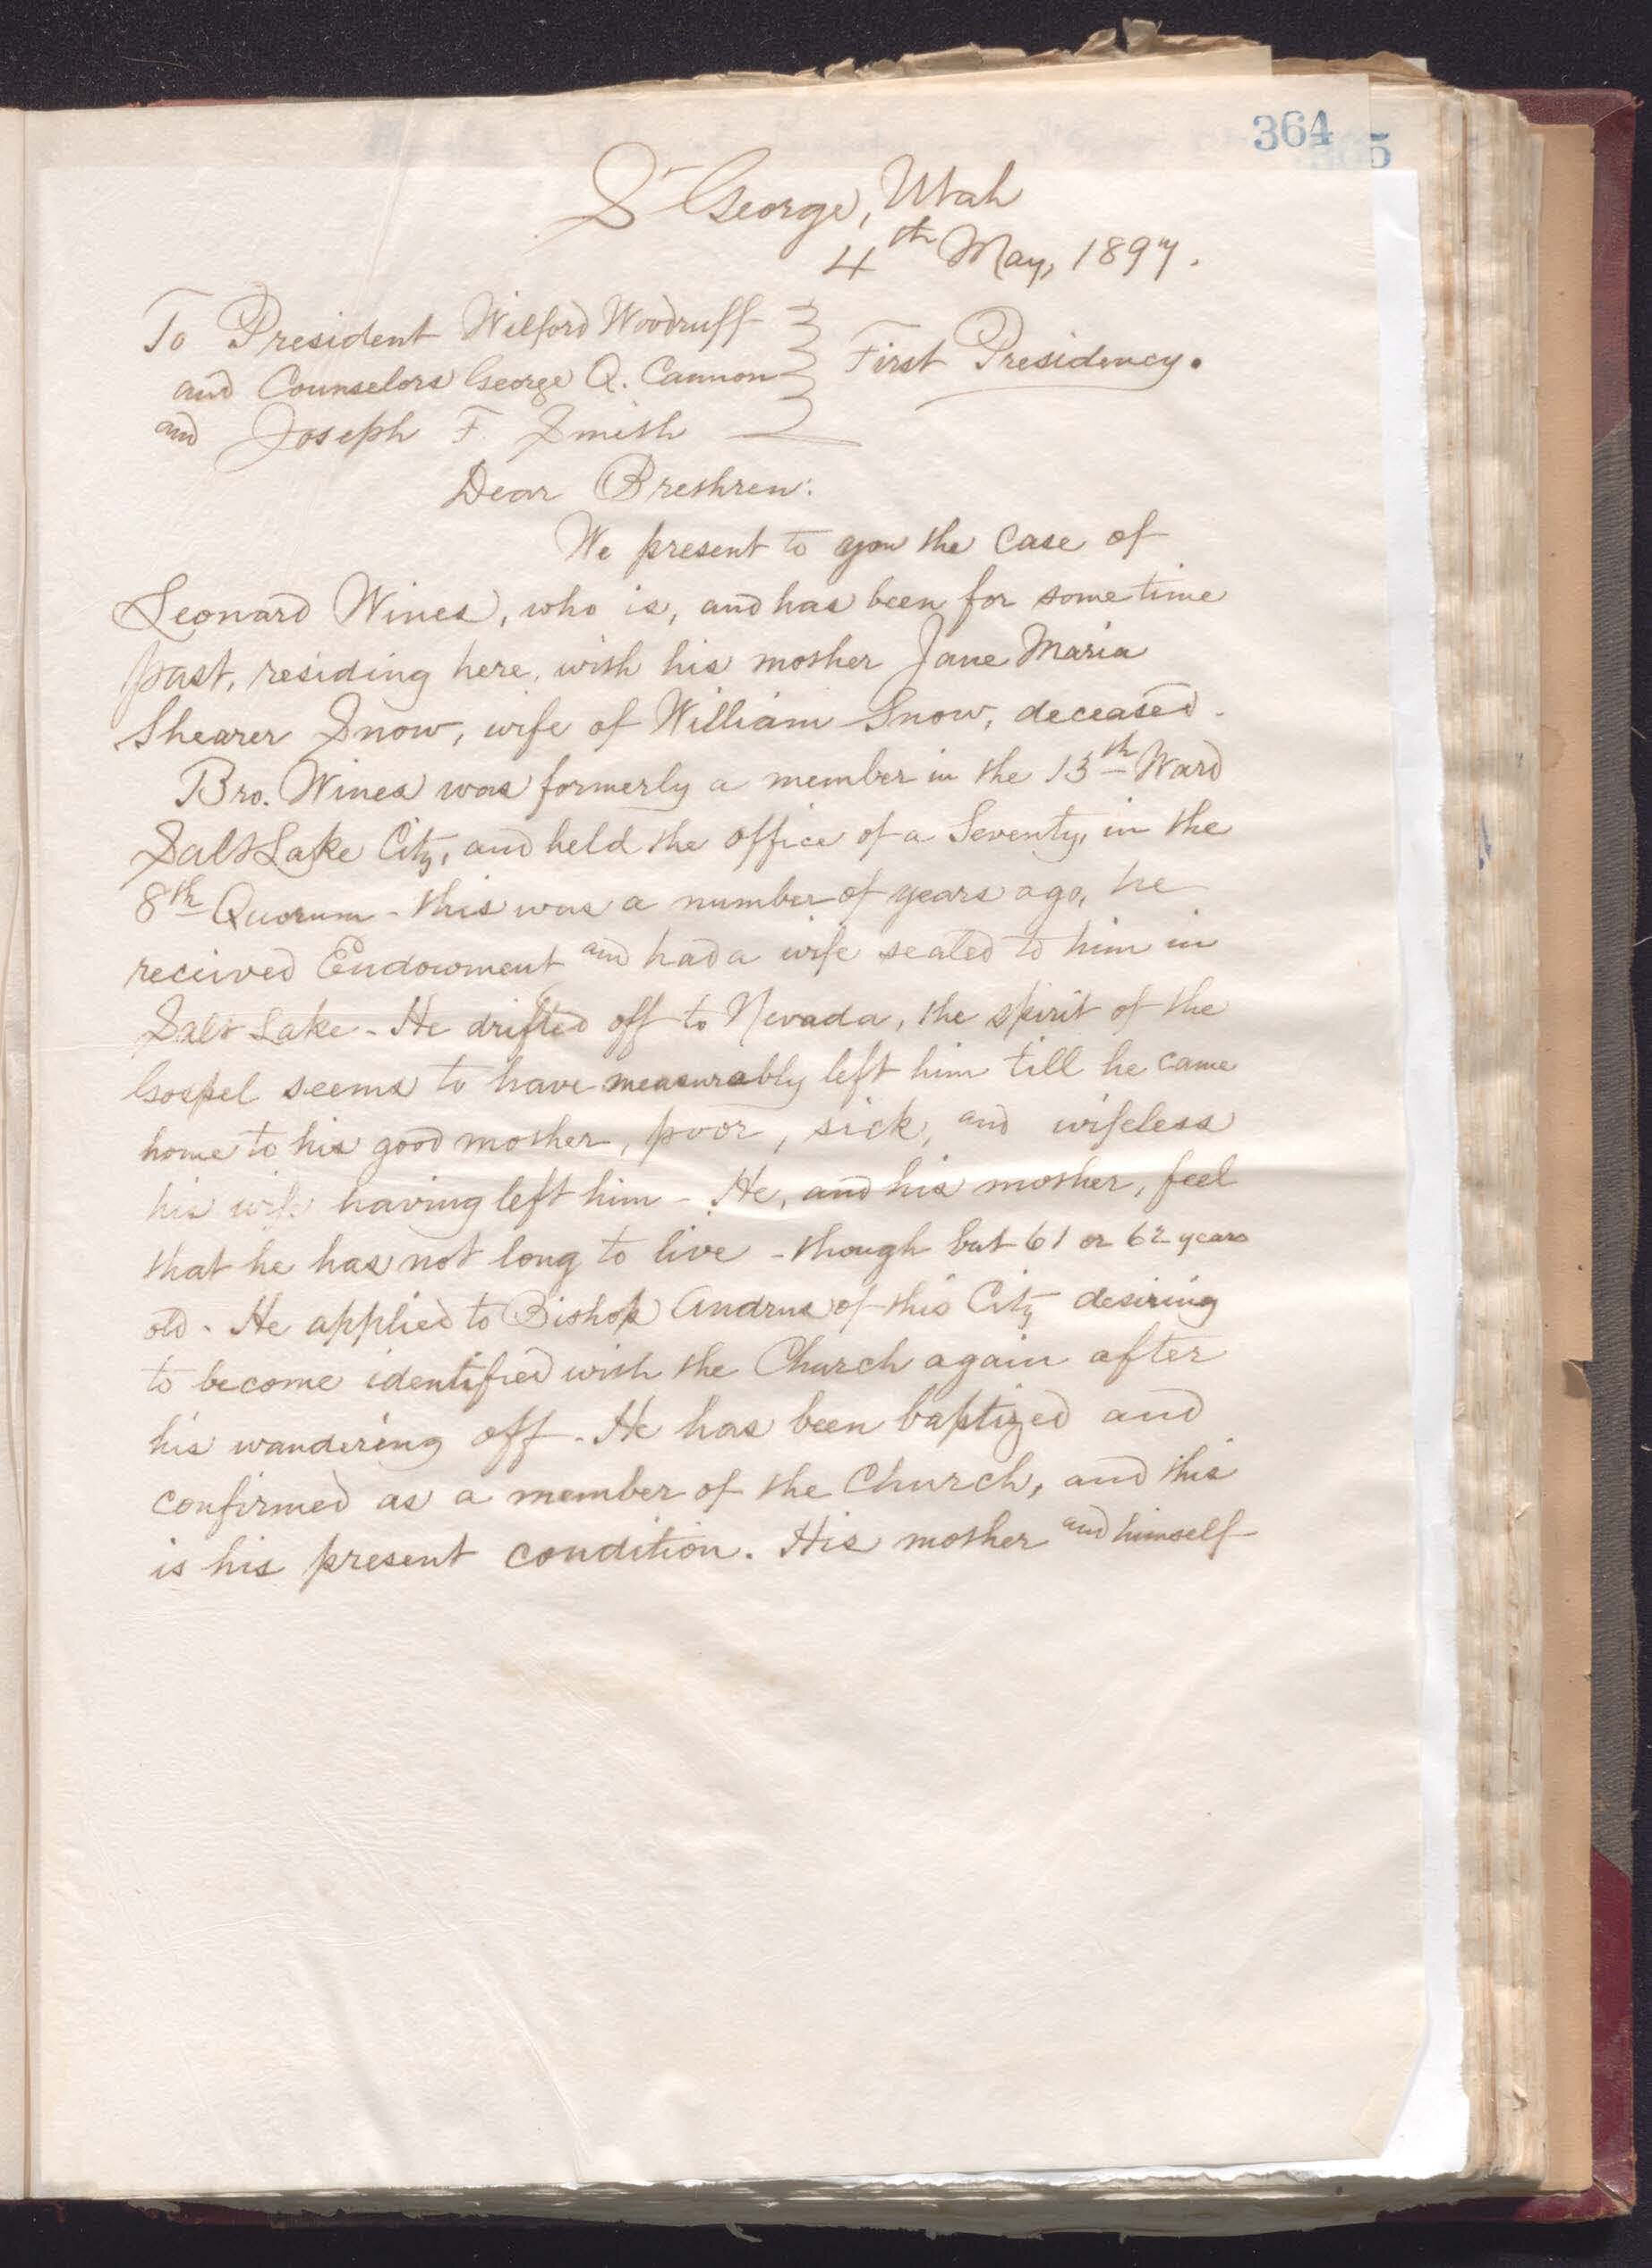 364
5
St George, Utah
4th May, 1897.
To President Wilford Woodruff
and Counselors George Q. Cannon
and Joseph F. Smith
First Presidency.
Dear Brethren:
We present to you the case of
Leonard Wines, who is, and has been for some time
past, residing here, with his mother Jane Maria
Shearer Snow, wife of William Snow, deceased.
Bro. Wines was formerly a member in the 13th Ward
Salt Lake City, and held the office of a Seventy, in the
8th Quorum - this was a number of years ago, he
received Endowment and had a wife sealed to him in
Salt Lake - He drifted off to Nevada, the spirit of the
Gospel seems to have measurably left him till he came
home to his good mother, poor, sick, and wifeless
his wife having left him - He, and his mother, feel
that he has not long to live - though but 61 or 62 years
old. He applied to Bishop Andrus of this City desiring
to become identified with the Church again after
his wandering off. He has been baptized and
confirmed as a member of the Church, and this
is his present condition. His mother and himself